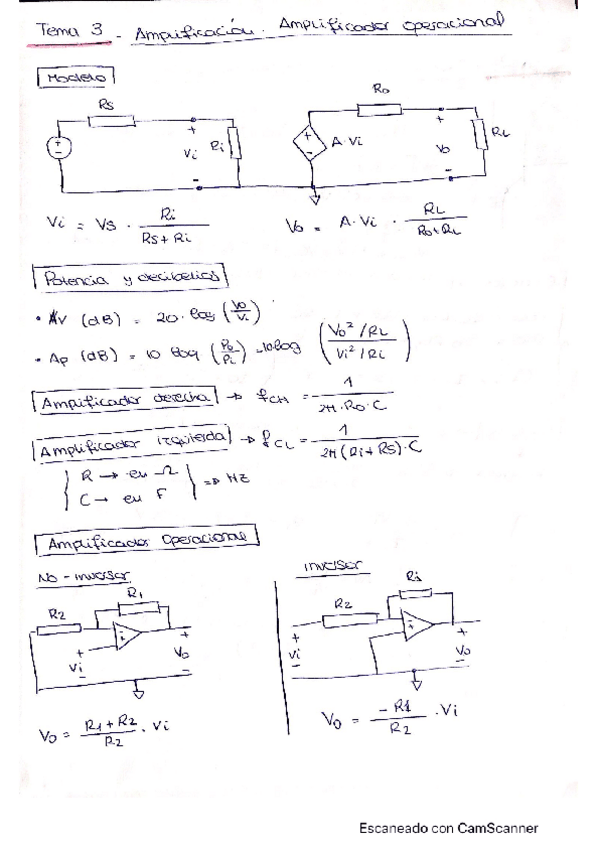 Tema 3 - Amplificación. Amplificador operacional
Modelo
Rs
Ro
+
Vi
-
Ri
A·Vi
+
Vo
-
RL
Vi = Vs · Ri / (Rs + Ri)
Vo = A·Vi · RL / (Ro+RL)
Potencia y decibelios
• Av (dB) = 20· log (Vo/Vi)
• Ap (dB) = 10 log (Po/Pi) = 10log (Vo²/RL / Vi²/Ri)
Amplificador derecha → fCH = 1 / 2π·Ro·C
Amplificador izquierda → fCL = 1 / 2π(Ri+Rs)·C
R → en Ω
C → en F
⇒ Hz
Amplificador Operacional
No-inversor
R1
R2
+
Vi
-
+
Vo
-
Vo = (R1+R2) / R2 · Vi
inversor
R1
R2
+
Vi
-
+
Vo
-
Vo = -R1 / R2 · Vi
Escaneado con CamScanner